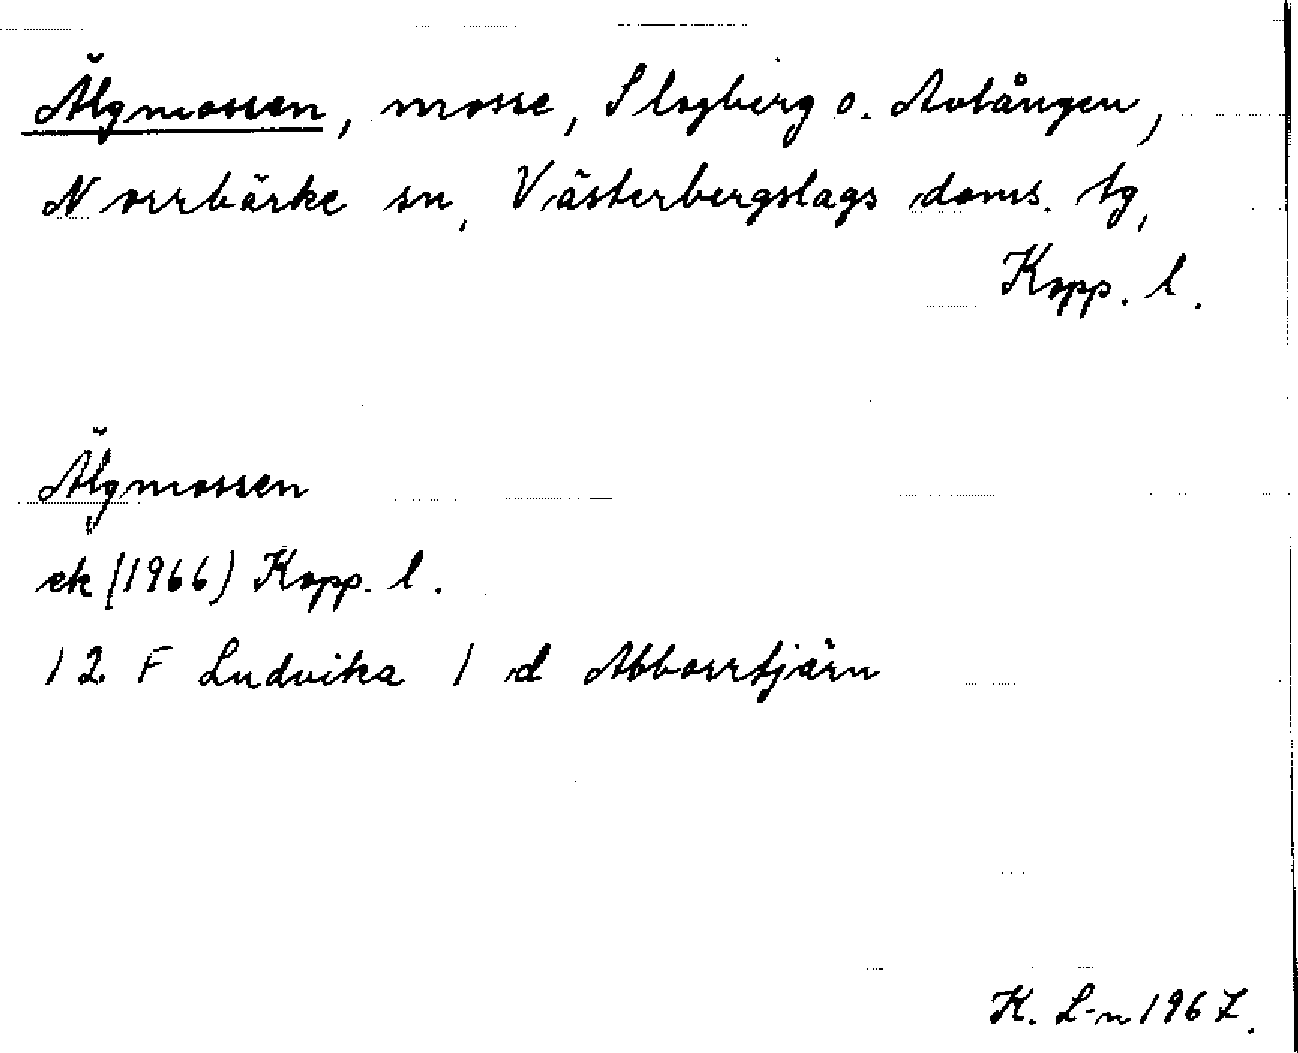 Älgmossen, mosse, Slogberg o. Avtången,
Norrbärke sn, Västerbergslags doms. tg,
Kopp. l.
Älgmossen
ek (1966) Kopp. l.
12 F Ludvika 1 d Abborrtjärn
K. L-n 1967.